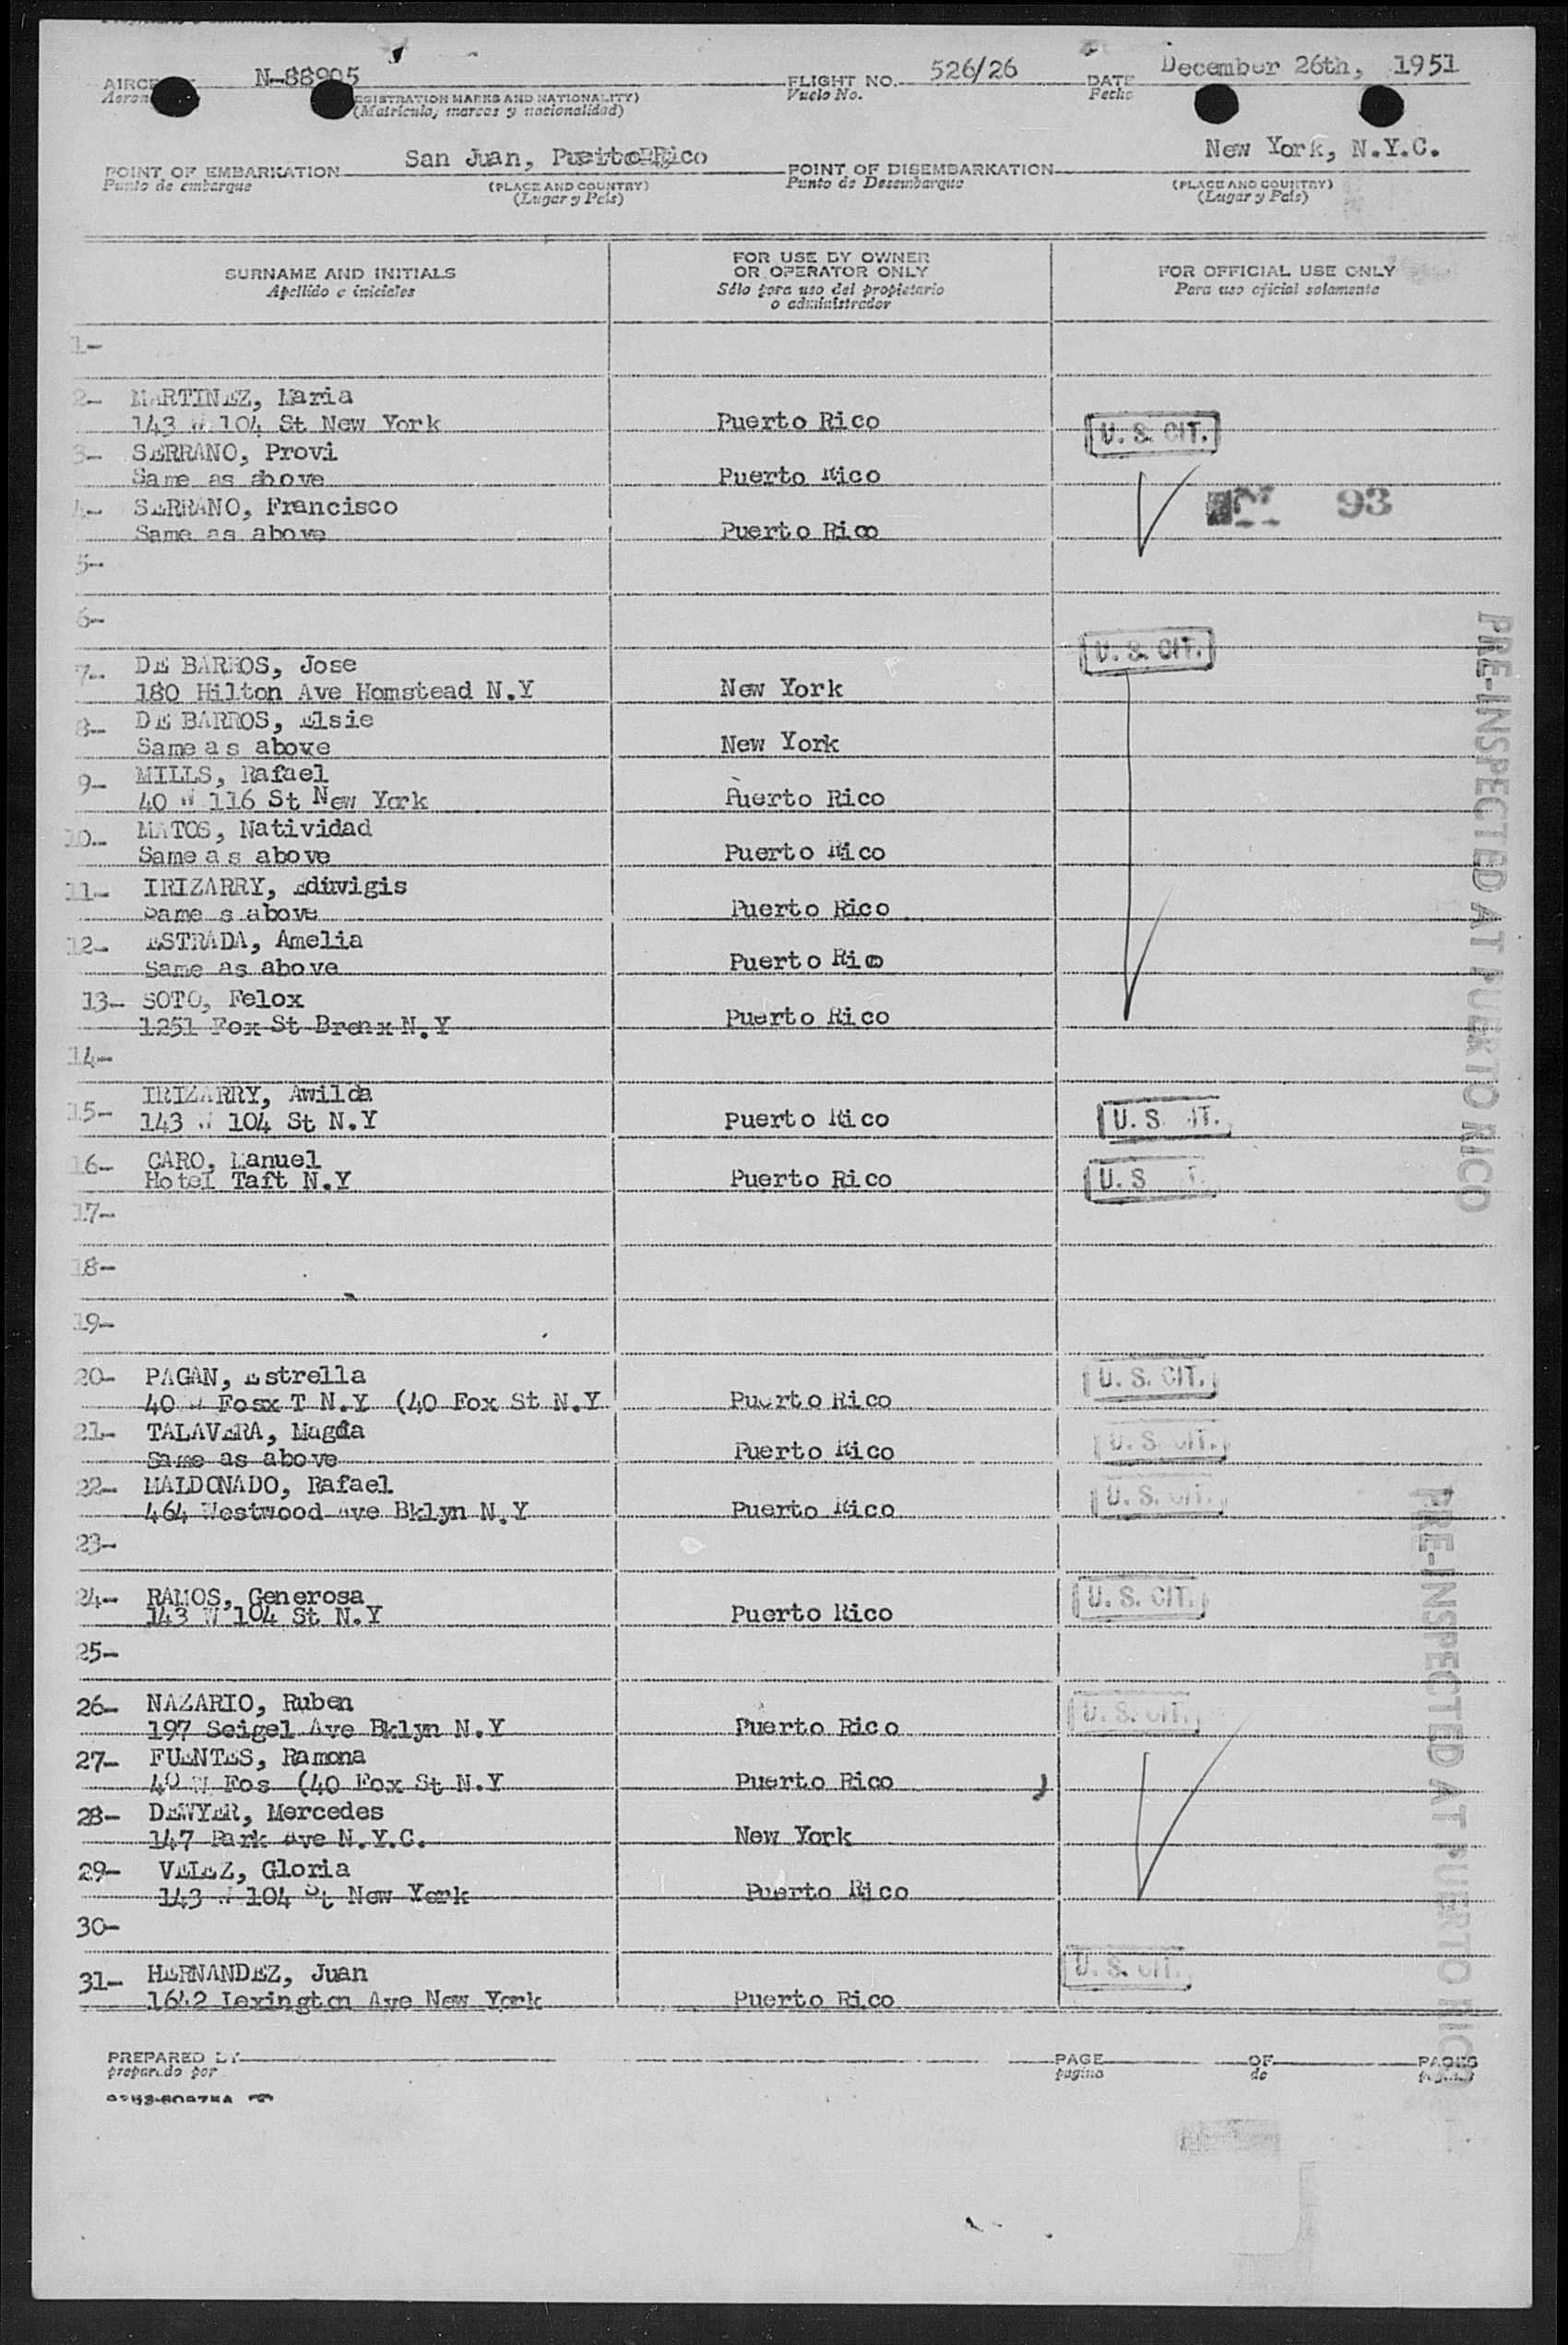 N-88905
FLIGHT NO. 526/26
Vuelo No.
DATE December 26th, 1951
Fecha
(Matricula, marcas y nacionalidad)
POINT OF EMBARKATION San Juan, Puerto Rico
Punto de embarque
(PLACE AND COUNTRY)
(Lugar y País)
POINT OF DISEMBARKATION New York, N.Y.C.
Punto de Desembarque
(PLACE AND COUNTRY)
(Lugar y País)
SURNAME AND INITIALS
Apellido e iniciales
FOR USE BY OWNER
OR OPERATOR ONLY
Sólo para uso del propietario
o administrador
FOR OFFICIAL USE ONLY
Para uso oficial solamente
1-
2- MARTINEZ, Maria
143 W 104 St New York Puerto Rico U. S. CIT.
3- SERRANO, Provi
Same as above Puerto Rico
4- SERRANO, Francisco 93
Same as above Puerto Rico
5-
6-
U. S. CIT.
7- DE BARROS, Jose
180 Hilton Ave Homstead N.Y New York
8- DE BARROS, Elsie
Same as above New York
9- MILLS, Rafael
40 W 116 St New York Puerto Rico
10- MATOS, Natividad
Same as above Puerto Rico
11- IRIZARRY, Eduvigis
Same s above Puerto Rico
12- ESTRADA, Amelia
Same as above Puerto Rico
13- SOTO, Felox
1251 Fox St Bronx N.Y Puerto Rico
14-
IRIZARRY, Awilda
15- 143 W 104 St N.Y Puerto Rico U. S. IT.
16- CARO, Manuel
Hotel Taft N.Y Puerto Rico U. S
17-
18-
19-
20- PAGAN, Estrella U. S. CIT.
40 W Fosx T N.Y (40 Fox St N.Y Puerto Rico
21- TALAVERA, Magda U. S. CIT.
Same as above Puerto Rico
22- MALDONADO, Rafael U. S. CIT.
464 Westwood Ave Bklyn N.Y Puerto Rico
23-
24- RAMOS, Generosa U. S. CIT.
143 W 104 St N.Y Puerto Rico
25-
26- NAZARIO, Ruben U. S. CIT.
197 Seigel Ave Bklyn N.Y Puerto Rico
27- FUENTES, Ramona
40 W Fos (40 Fox St N.Y Puerto Rico )
28- DEWYER, Mercedes
147 Park Ave N.Y.C. New York
29- VELEZ, Gloria
143 W 104 St New York Puerto Rico
30-
31- HERNANDEZ, Juan U. S. CIT.
1642 Lexington Ave New York Puerto Rico
PREPARED BY
preparado por
PAGE OF PAGES
pagina de
PRE-INSPECTED AT PUERTO RICO
PRE-INSPECTED AT PUERTO RICO